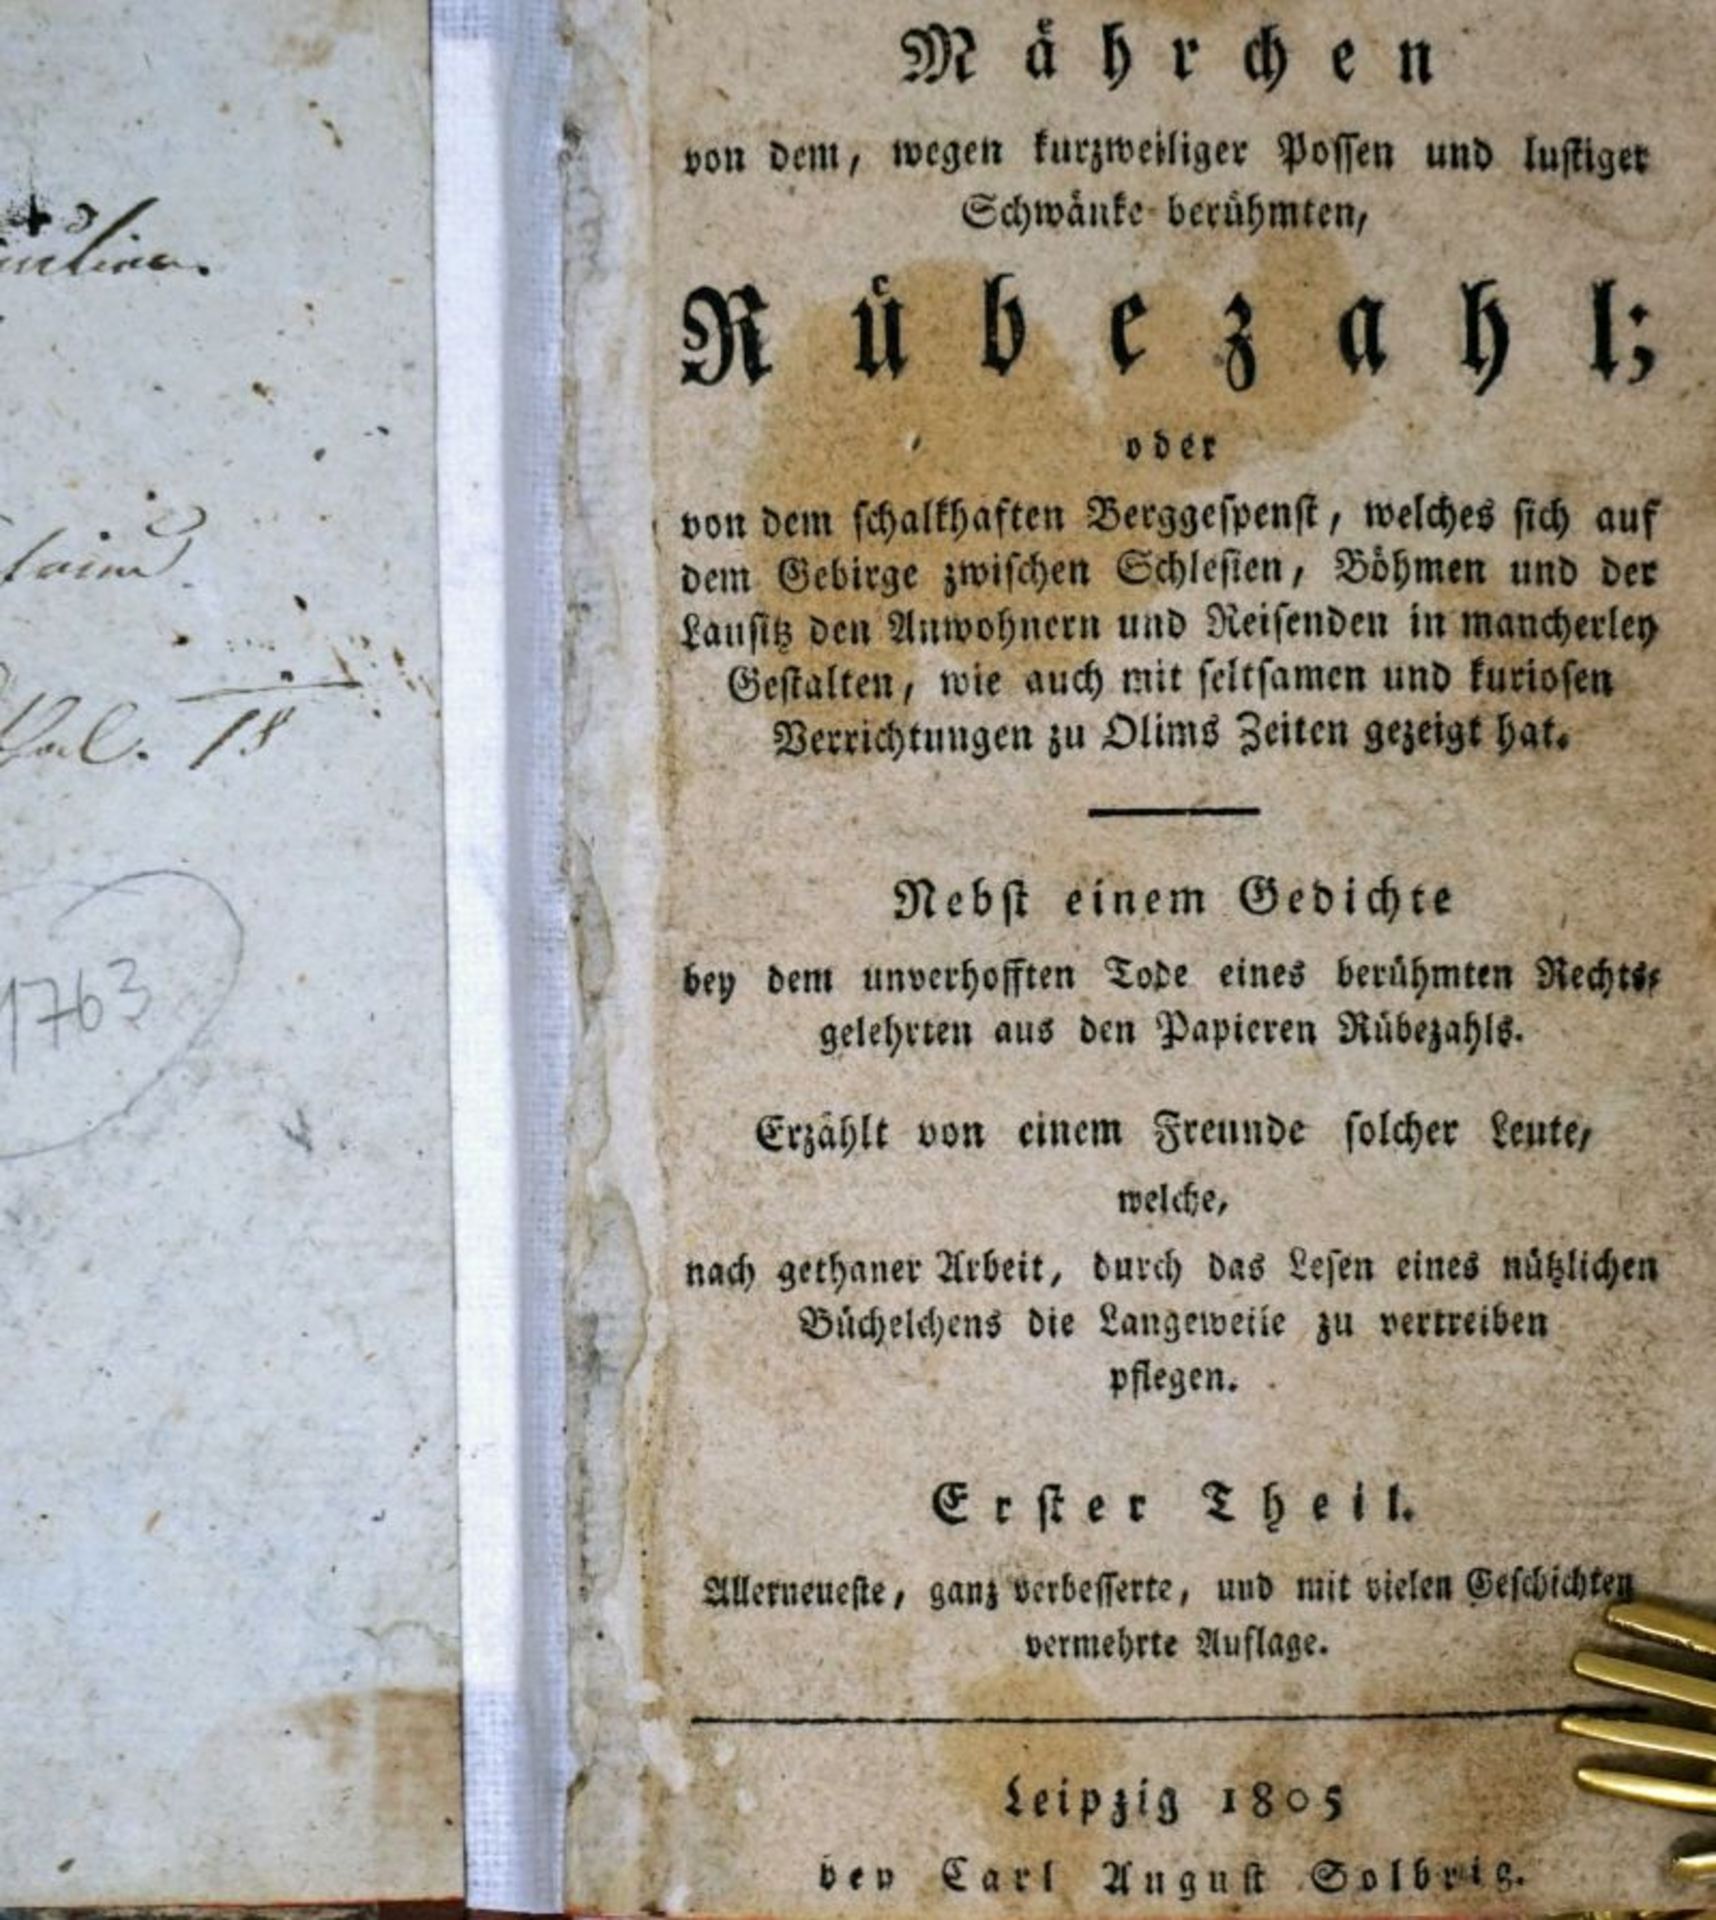 18
1763
Mährchen
von dem, wegen kurzweiliger Possen und lustiger
Schwänke berühmten,
Rübezahl;
oder
von dem schalkhaften Berggespenst, welches sich auf
dem Gebirge zwischen Schlesien, Böhmen und der
Lausitz den Anwohnern und Reisenden in mancherley
Gestalten, wie auch mit seltsamen und kuriosen
Verrichtungen zu Olims Zeiten gezeigt hat.
Nebst einem Gedichte
bey dem unverhofften Tode eines berühmten Rechts-
gelehrten aus den Papieren Rübezahls.
Erzählt von einem Freunde solcher Leute,
welche,
nach gethaner Arbeit, durch das Lesen eines nützlichen
Büchelchens die Langeweile zu vertreiben
pflegen.
Erster Theil.
Allerneueste, ganz verbesserte, und mit vielen Geschichten
vermehrte Auflage.
Leipzig 1805
bey Carl August Solbrig.